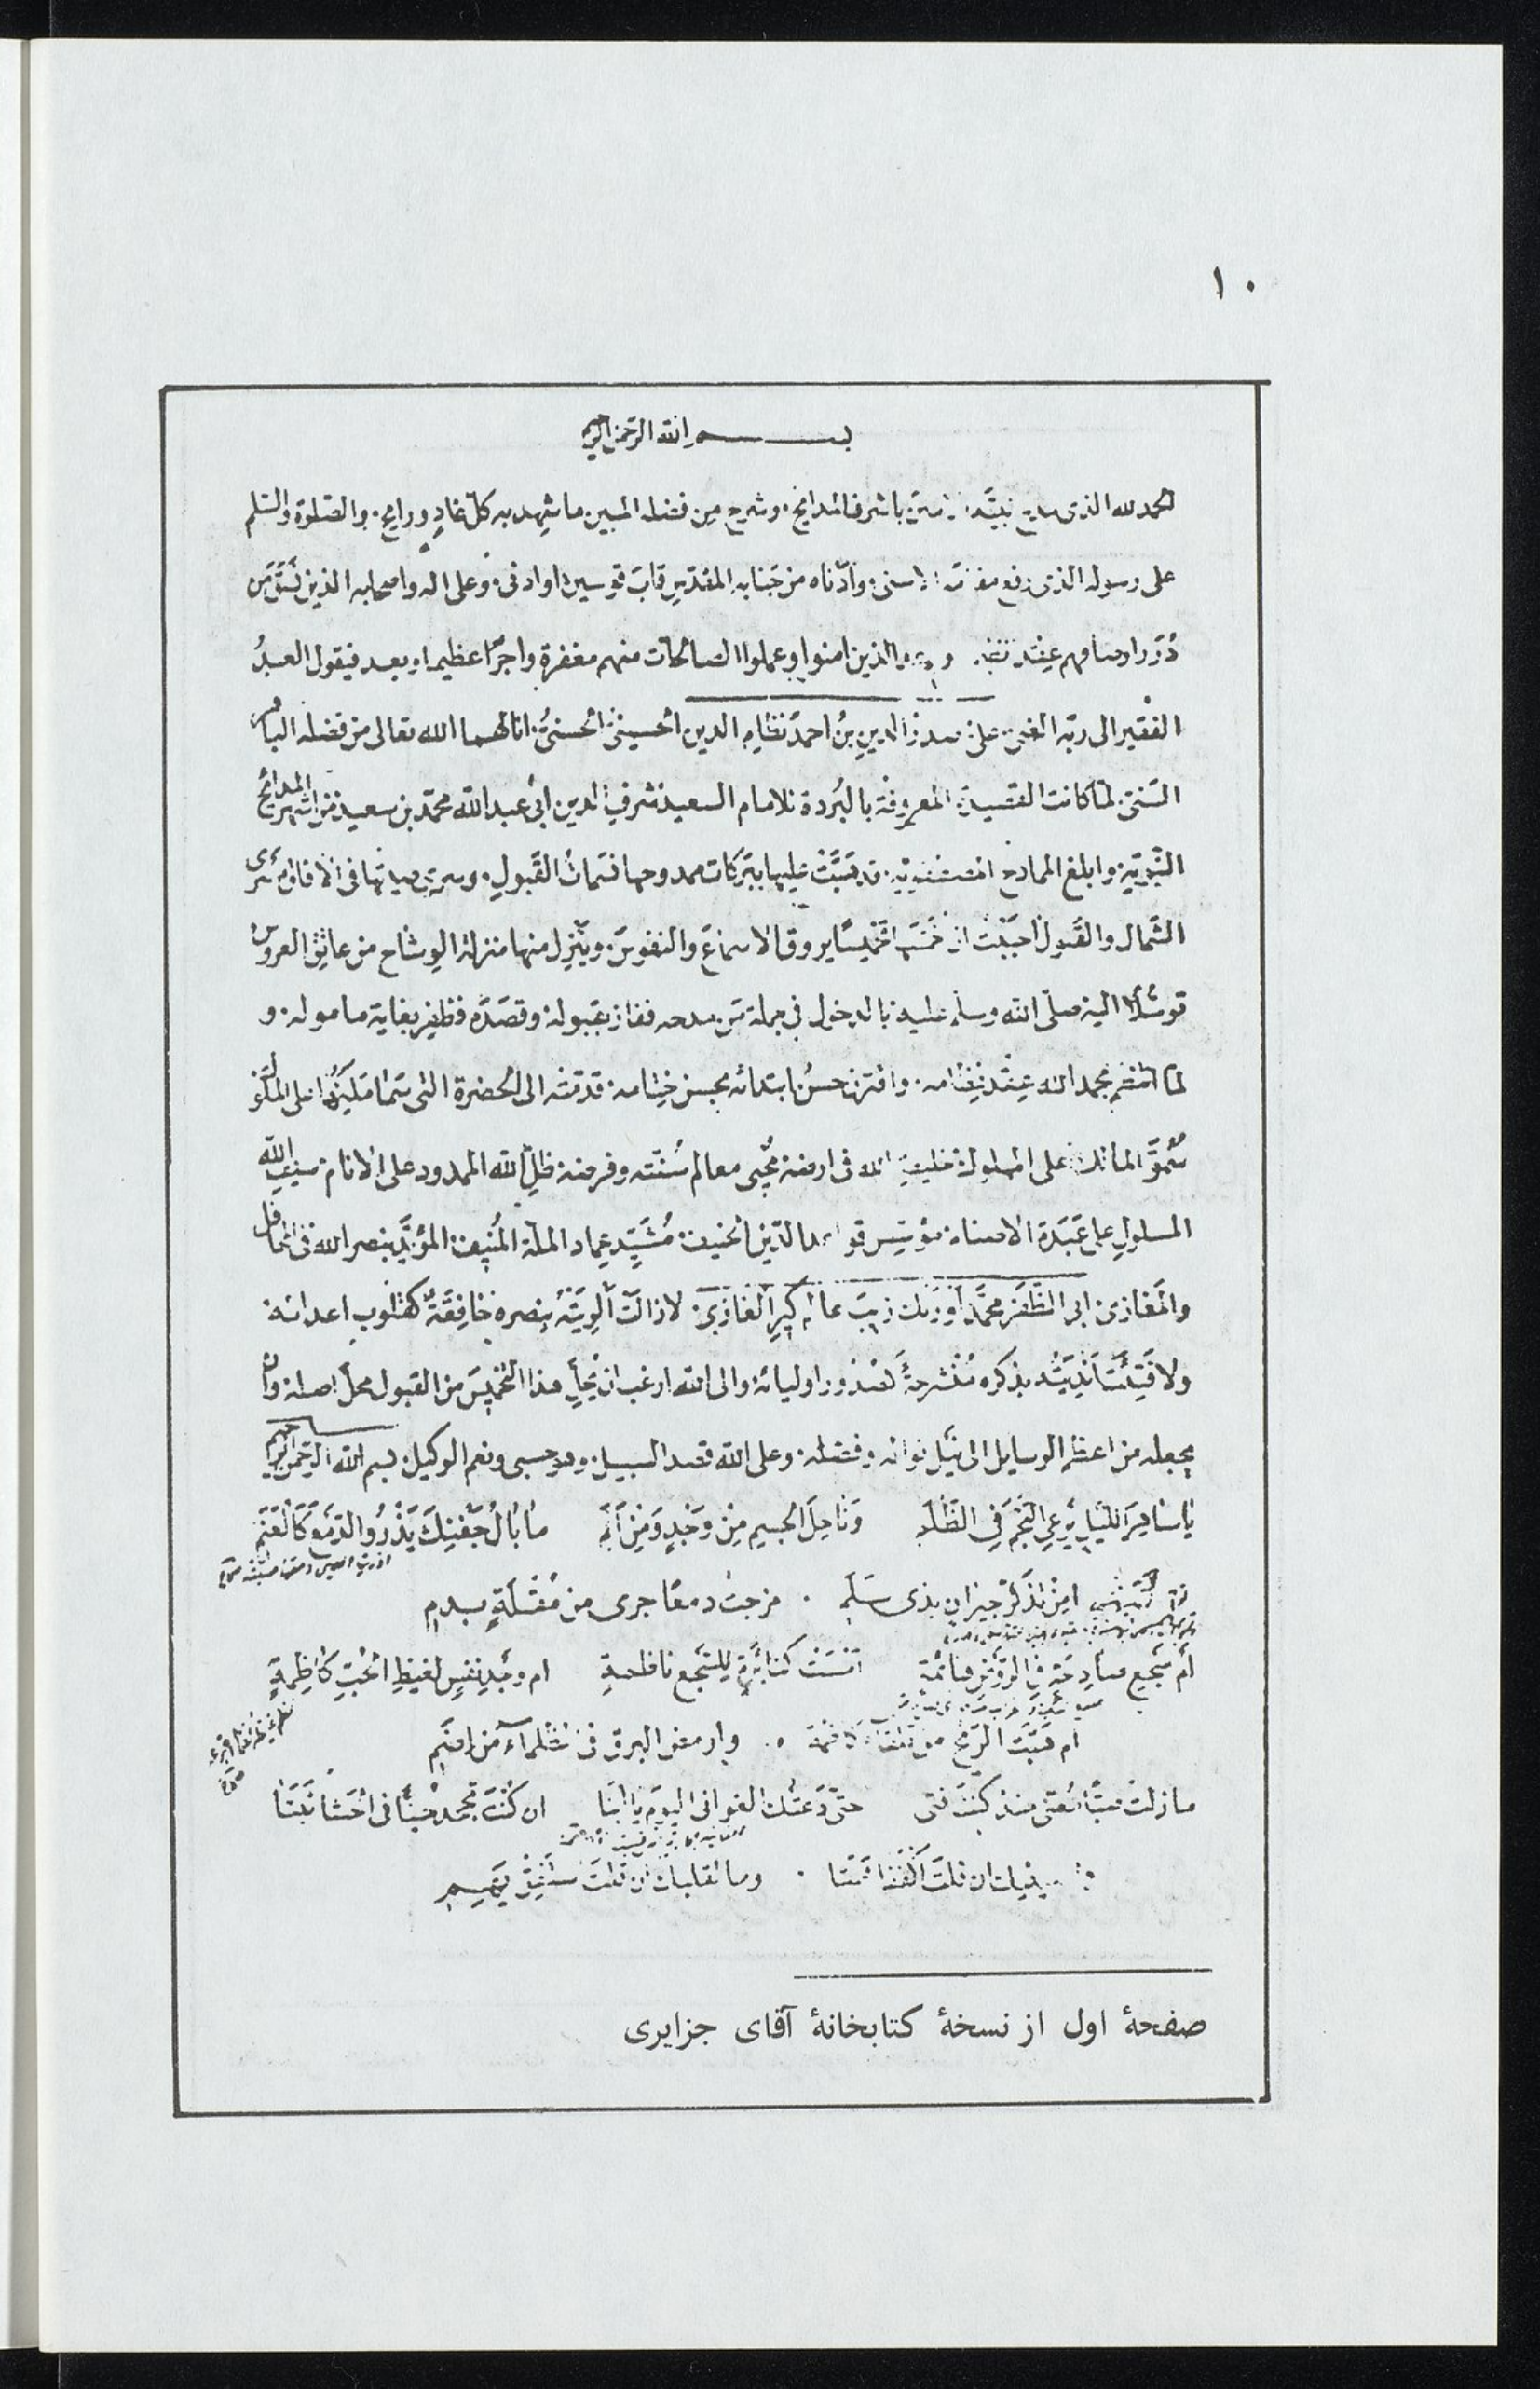 ١٠
بسم الله الرحمن الرحيم
الحمد لله الذى مدح نبيَّه باشرف المدايح. وشرح من فضله المبين ما شهد به كلّ غادٍ ورايح. والصّلوة والسّلم
على رسوله الذى رفع الاسنى. وادناه من جنابه المقدّس قاب قوسين او ادنى. وعلى اله واصحابه الذين
دُرَر اوصافهم عقد الذين امنوا وعملوا الصالحات منهم مغفرة واجرًا عظيما. وبعد فيقول العبدُ
الفقير الى ربّه الغنى علىّ صدرُ الدينِ بنُ احمدَ نظامِ الدين الحسينىُّ الحسنىُّ. انالهما الله تعالى من فضله
السَنى. لما كانت القصيدة المعروفة بالبُردة للامام السعيد شرف الدين ابى عبد الله محمّد بن سعيد من اشهر المدائح
النّبويّة. وابلغ الممادح قد هَبَّتْ عليها ببَرَكات ممدوحها نسَماتُ القَبولِ. وسرى صيتها فى الافاق مسرى
الشَمال والقَبول احببْت ان اخمّسها تخميسًا يروق الاسماعَ والنفوسَ. ويَنْزِل منها منزلة الوِشاح من عاتِق العروسِ
توسّلًا اليه صلّى الله وسلم عليه بالدخول فى جملة مَن مدحه ففاز بقبوله. وقصَدَه فظفِر بغاية مأموله. و
لما انتظم بحمد الله عِقْد نظامه. واقترن حسنُ ابتدائه بحسن ختامه. قدمته الى الحضرة التى سَمَا مَليكُها على الملوك
سُمُوَّ المالك على المملوك خليفة الله فى ارضه مُحْيى معالم سُنّته وفرضه ظلِّ الله الممدود على الانام. سيف الله
المسلولِ على عَبَدَة الاصنام. مؤسِّس قواعد الدّين الحنيف. مُشَيِّد عماد الملة المُنيف. المؤيَّد بنصر الله فى المحافل
والمغازى. ابى الظَفَر محمَّد اَوْرَنك زيبَ عالم كيرِ الغازى. لا زالت اَلْوِيَتُه بنصره خافِقَةً كقلوب اعدائه.
ولا فَتِئَت اَنْدِيَتُه بذكره مُنْشرحةً كصُدُور اوليائه. والى الله ارغب ان يُحِلَّ هذا التخميسَ من القبول محلّ اصله. وان
يجعله من اعظم الوسايل الى نيل نواله وفضله. وعلى الله قصد السبيل. وهو حسبى ونعم الوكيل. بسم الله الرّحمن الرّحيم
يا ساهِرَ اللّيلِ يَرْعى النَّجْمَ فى الظُّلَمِ وَنَاحِلَ الجسمِ مِنْ وَجْدٍ وَمِنْ اَلَمِ ما بالُ جَفْنِكَ يَذْرُو الدَّمعَ كَالعَنَمِ
امِنْ تَذَكُّرِ جيرانٍ بذى سَلَمِ . مزجت دمعًا جرى من مُقْلَةٍ بدمِ
أم سَجع صادِحَة فى الرَّوض ام وَجْدِ نفسٍ لغيظِ الحُبِّ كاظِمَةٍ
ام هَبَّت الرّيح من تلقاء كاظمة . واومض البرق فى الظلماءِ من اِضَمِ
ما زلت مُنذ كنتَ فتى حتّى دَعَتْك الغوانى اليومَ يا ابَتَا ان كُنْتَ تجحد حُبًّا فى الحَشَا ثَبَتَا
فما لعينيك ان قلتَ اكفُفا هَمَتَا . وما لقلبك ان قلتَ استفِقْ يَهِمِ
صفحهٔ اول از نسخهٔ كتابخانهٔ آقاى جزايرى